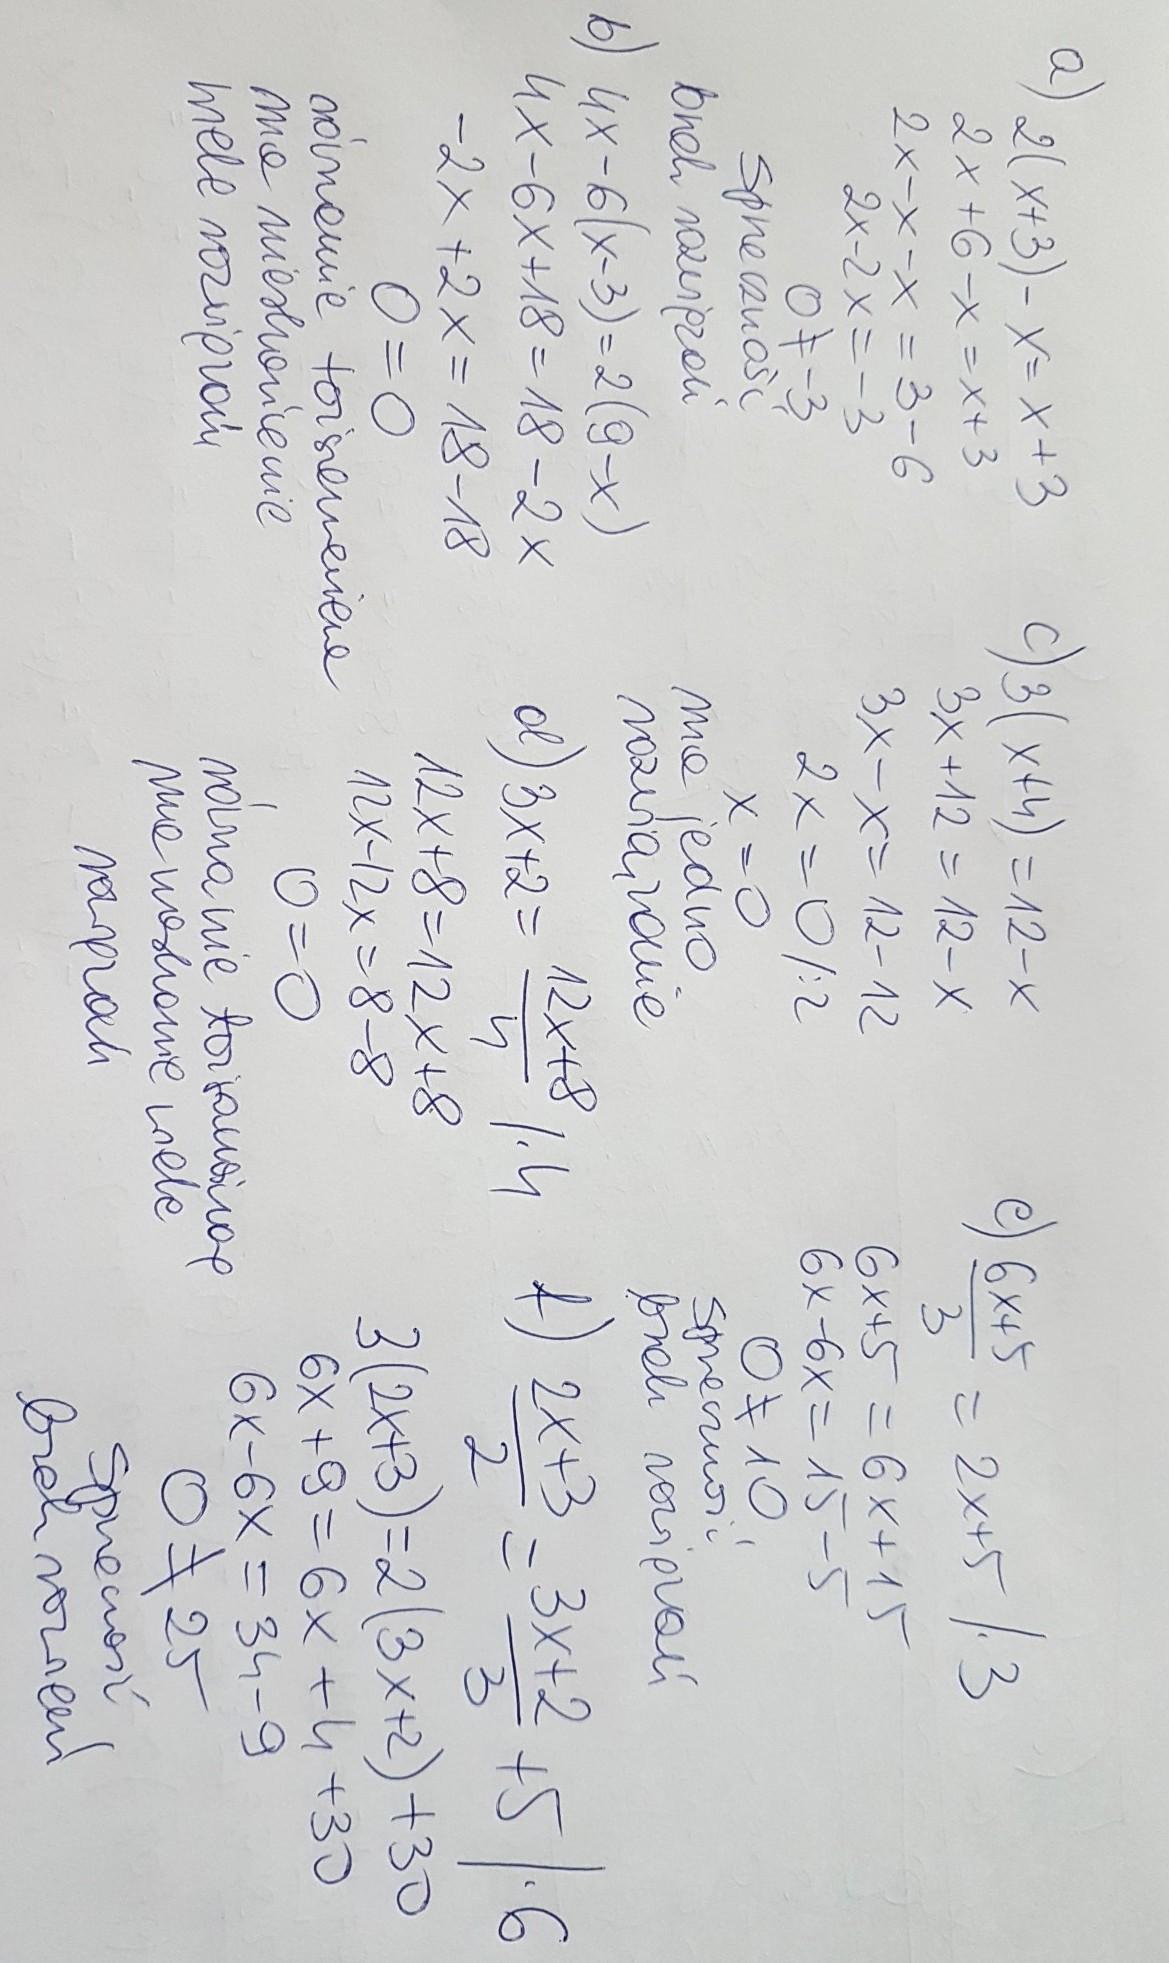 a) 2(x+3) - x = x+3
2x+6-x = x+3
2x-x-x = 3-6
2x-2x = -3
0 ≠ -3
sprzeczność
brak rozwiązań
b) 4x-6(x-3) = 2(9-x)
4x-6x+18 = 18-2x
-2x+2x = 18-18
0 = 0
równanie tożsamościowe
ma nieskończenie
wiele rozwiązań
c) 3(x+4) = 12-x
3x+12 = 12-x
3x-x = 12-12
2x = 0 /:2
x = 0
ma jedno
rozwiązanie
d) 3x+2 = \frac{12x+8}{4} /·4
12x+8 = 12x+8
12x-12x = 8-8
0 = 0
równanie
wiele
e) \frac{6x+5}{3} = 2x+5 /·3
6x+5 = 6x+15
6x-6x = 15-5
0 ≠ 10
sprzeczność
brak rozwiązań
f) \frac{2x+3}{2} = \frac{3x+2}{3} +5 /·6
3(2x+3) = 2(3x+2)+30
6x+9 = 6x+4+30
6x-6x = 34-9
0 ≠ 25
sprzeczność
brak